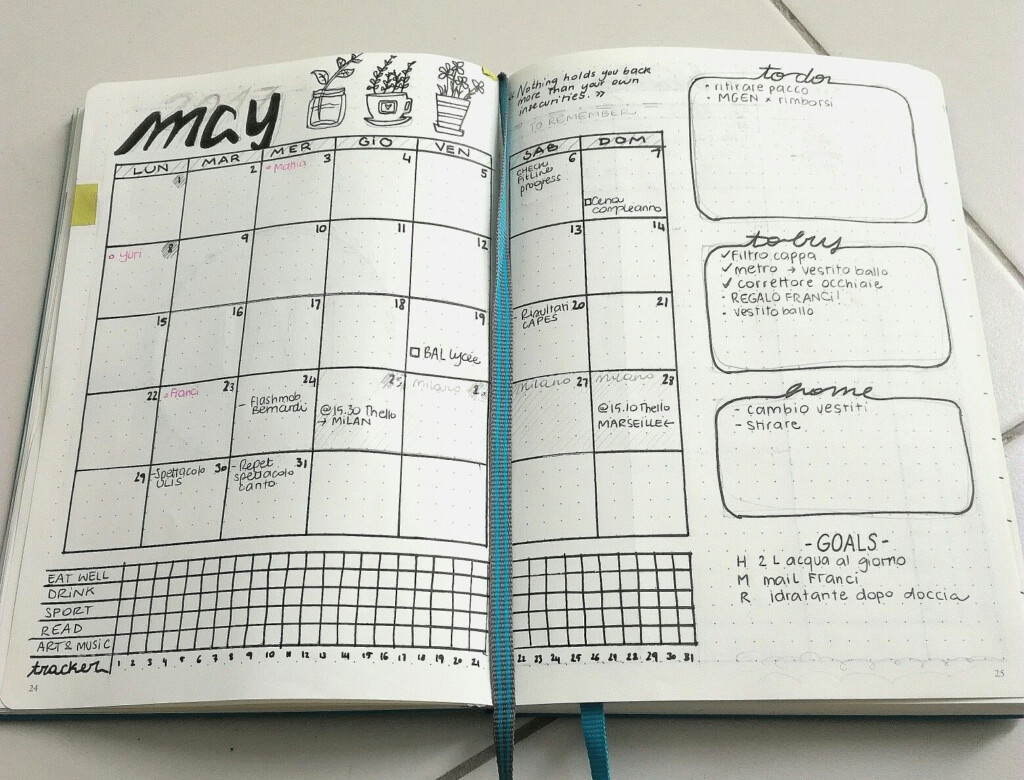 may
« Nothing holds you back
more than your own
insecurities. »
TO REMEMBER
LUN MAR MER GIO VEN SAB DOM
1 2 3 4 5 6 7
• Mathia
CHECK
FitLine
progress
Cena
compleanno
8 9 10 11 12 13 14
• Yuri
15 16 17 18 19 20 21
BAL Lycée
- Risultati
CAPES
22 23 24 25 26 27 28
• Franci
- Flashmob
Bernardi
@15.30 Thello
→ MILAN
milano
milano
milano
@15.10 Thello
MARSEILLE←
29 30 31
- Spettacolo
ULIS
- Repet
spettacolo
canto
EAT WELL
DRINK
SPORT
READ
ART & MUSIC
tracker 1 2 3 4 5 6 7 8 9 10 11 12 13 14 15 16 17 18 19 20 21 22 23 24 25 26 27 28 29 30 31
24
to do
• ritirare pacco
• MGEN x rimborsi
to buy
✓ Filtro cappa
✓ metro → vestito ballo
✓ correttore occhiaie
- REGALO FRANCI!
- vestito ballo
home
- cambio vestiti
- stirare
- GOALS -
H 2 L acqua al giorno
M mail Franci
R idratante dopo doccia
25